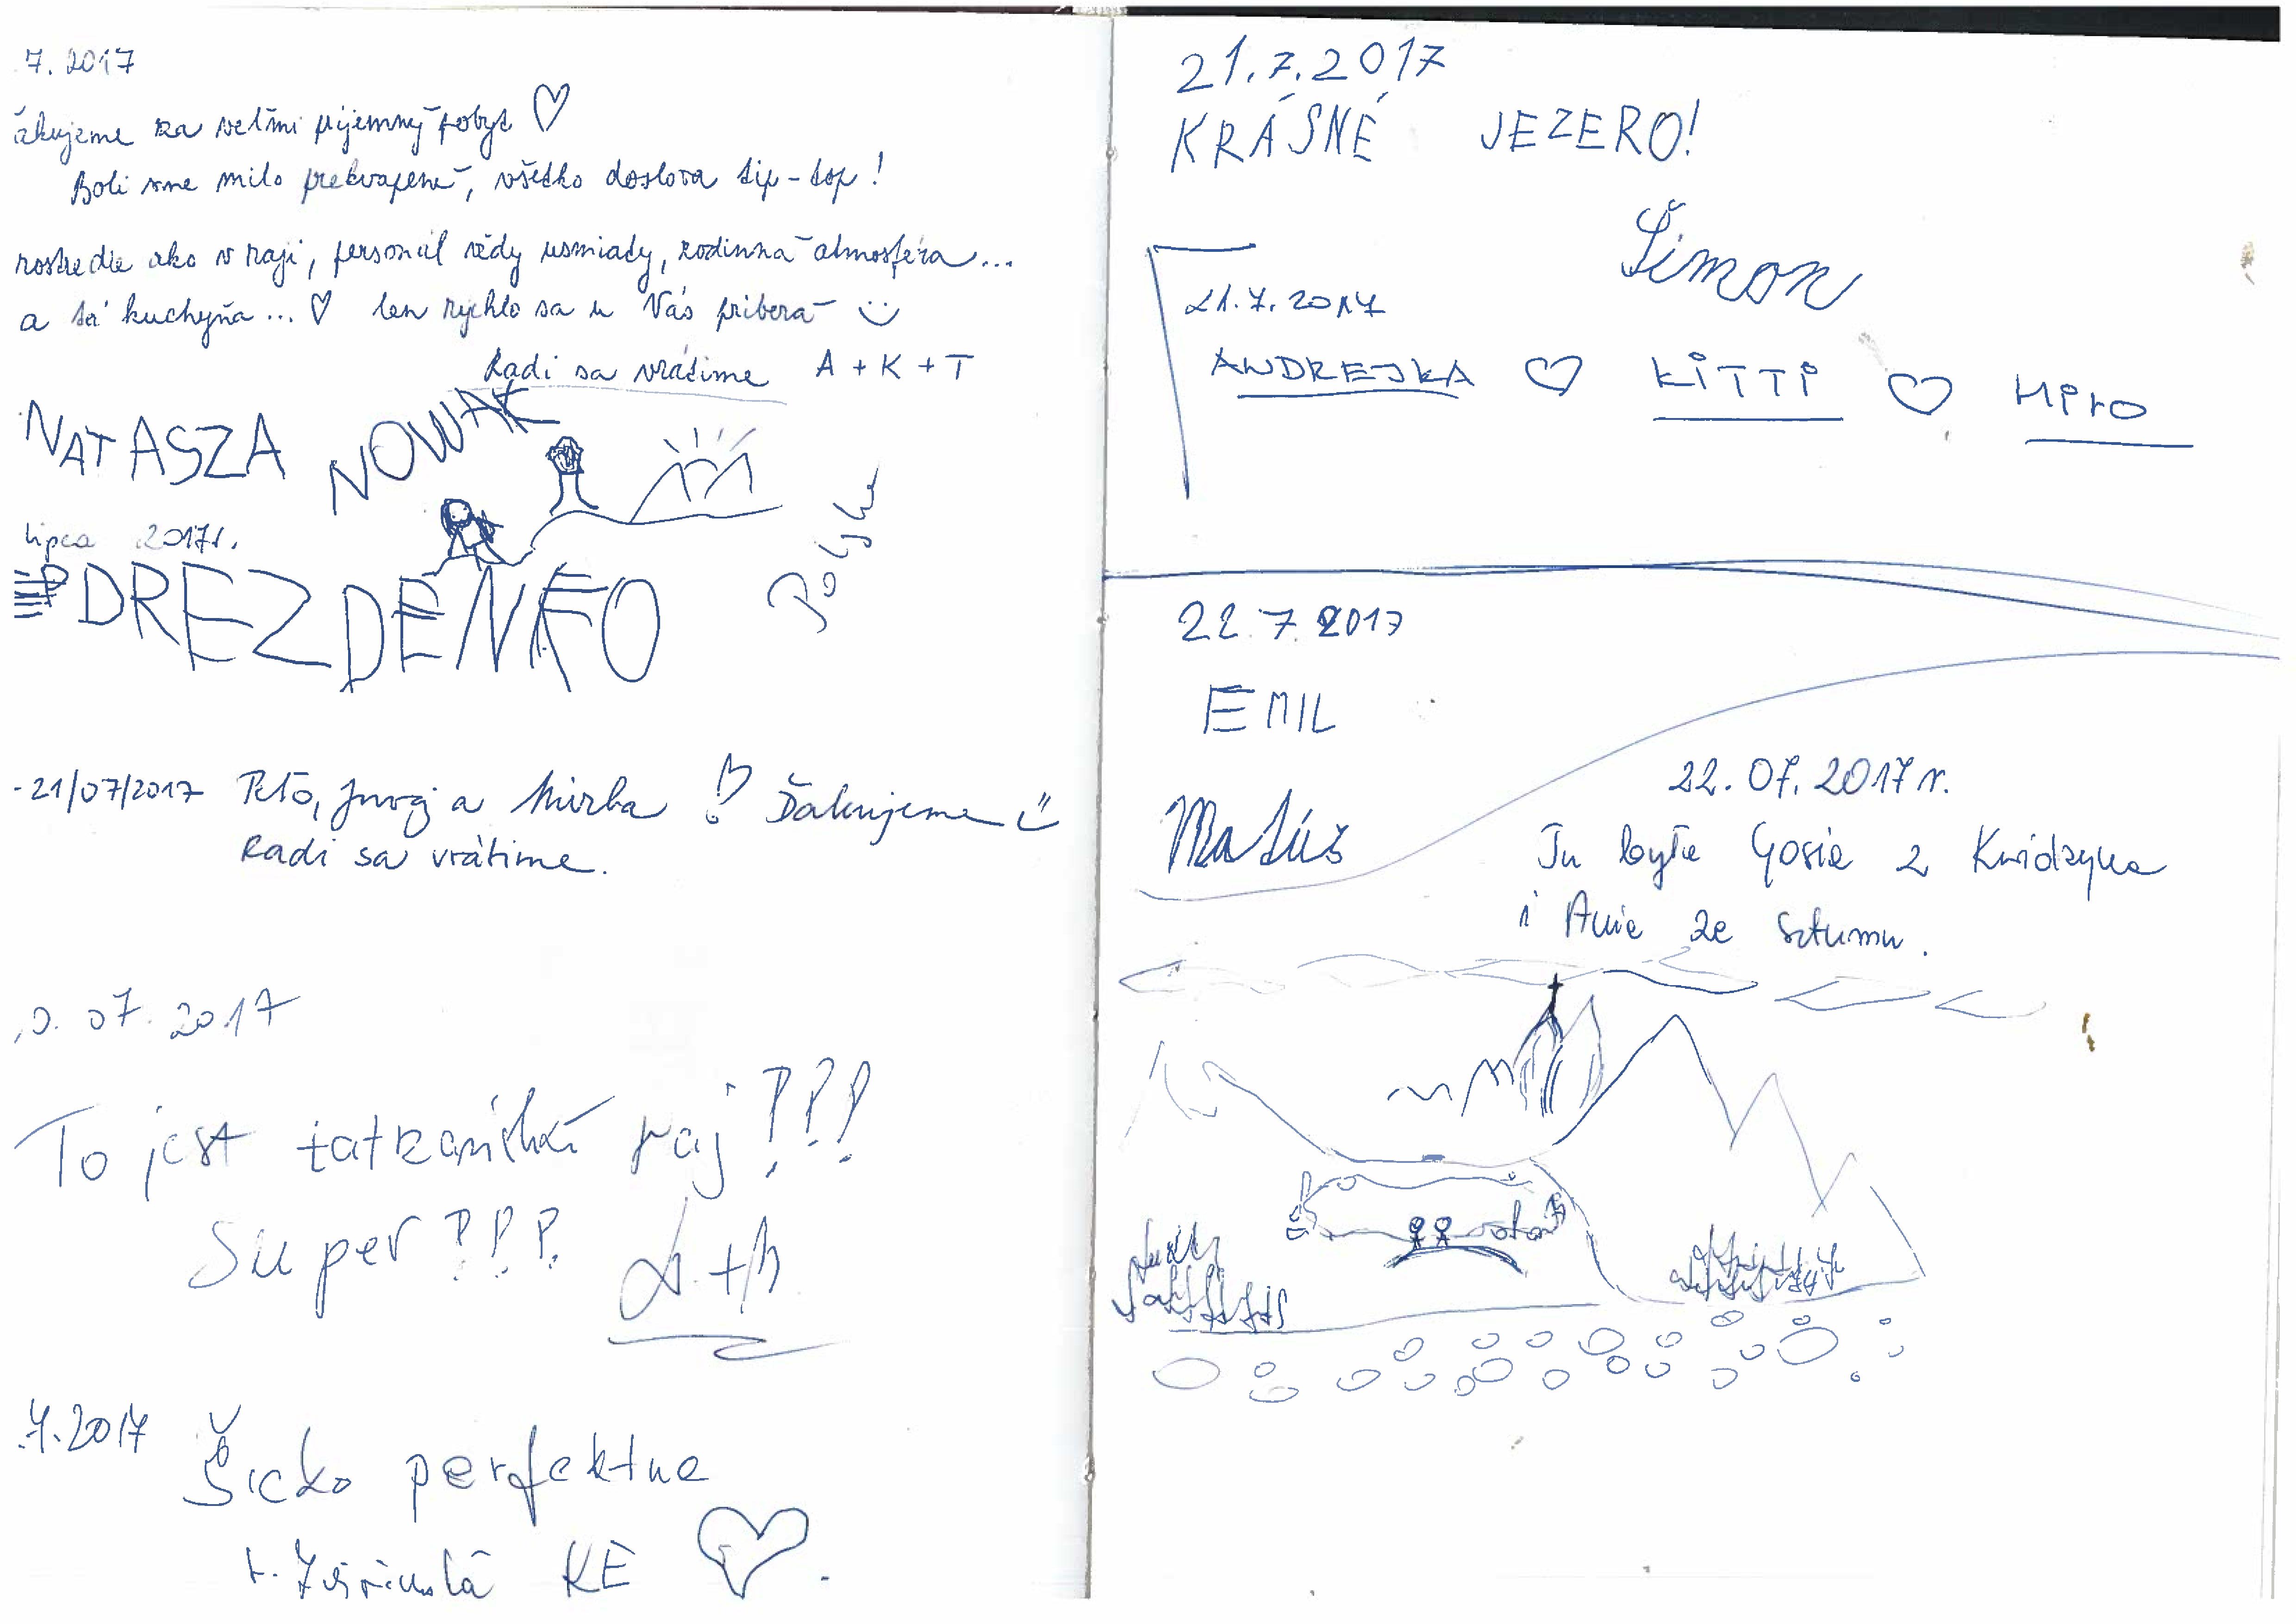 7. 2017
ákujeme za veľmi príjemný pobyt ♡
Boli sme milo prekvapení, všetko doslova tip-top!
rostredie ako v raji, personál vždy usmiaty, rodinná atmosféra...
a tá kuchyňa... ♡ len rýchlo sa u Vás priberá
Radi sa vrátime A + K + T
NATASZA NOWAK
lipca 2017r.
DREZDENKO
Polska
-21/07/2017 Peťo, Juraj a Mirka ! Ďakujeme
Radi sa vrátime.
0. 07. 2017
To jest tatrzański raj!!!
Super!!!
.7.2017 Šicko perfektne
KE ♡.
21.7.2017
KRÁSNÉ JEZERO!
Šimon
21.7.2017
ANDREJKA ♡ KiTTi ♡ MiRO
22.7.2017
EMIL
Matúš
22.07.2017r.
Tu była Gosia z Kwidzyna
i Ania ze Sztumu.